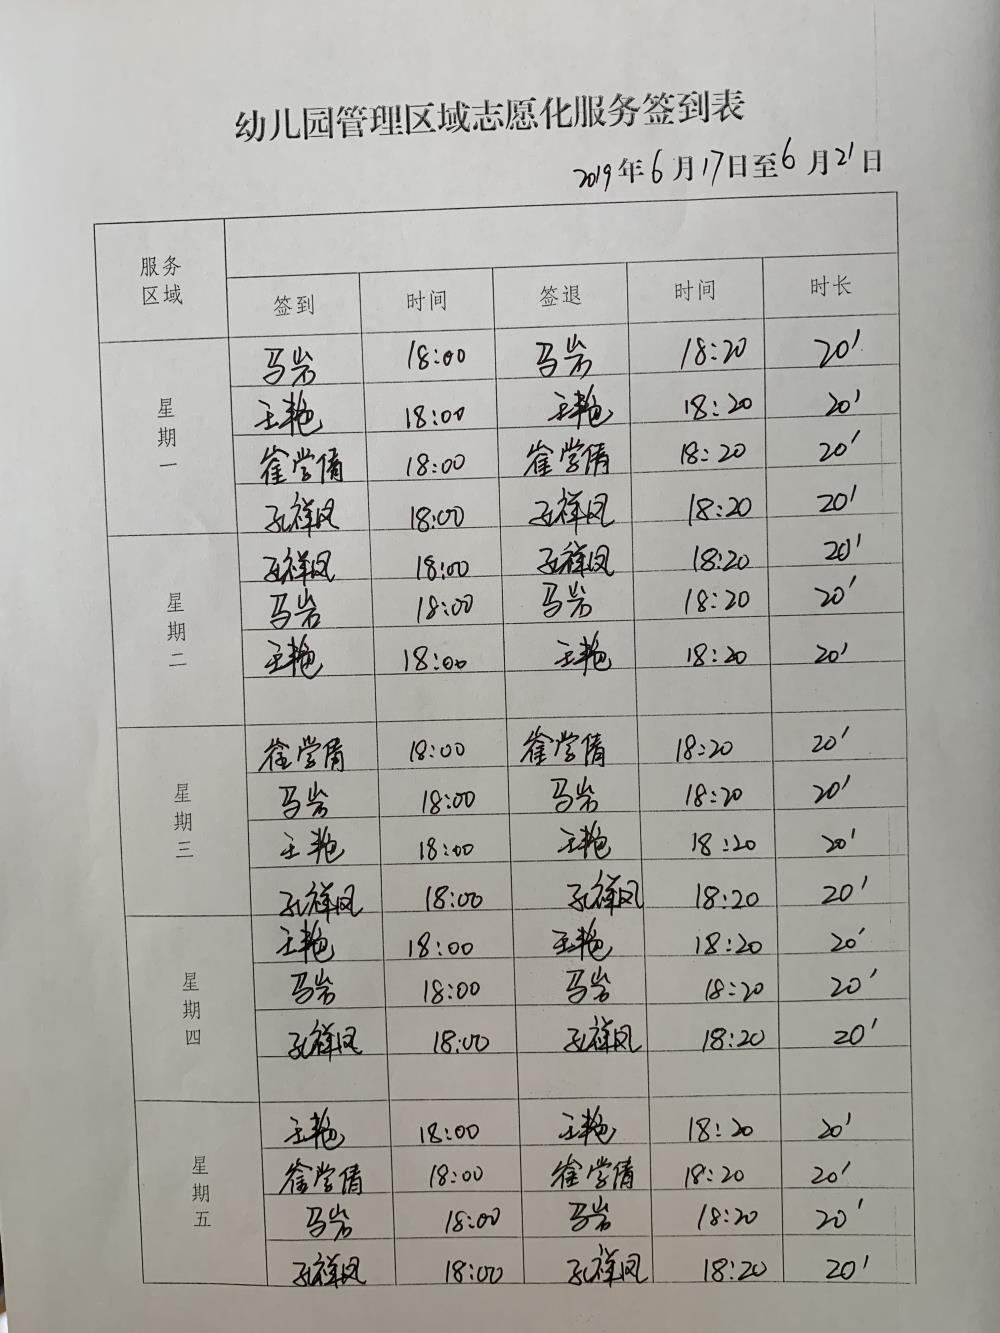 幼儿园管理区域志愿化服务签到表
2019年6月17日至6月21日
服务区域
签到 时间 签退 时间 时长
星期一
马岩 18:00 马岩 18:20 20'
王艳 18:00 王艳 18:20 20'
崔学倩 18:00 崔学倩 18:20 20'
孔祥凤 18:00 孔祥凤 18:20 20'
星期二
孔祥凤 18:00 孔祥凤 18:20 20'
马岩 18:00 马岩 18:20 20'
王艳 18:00 王艳 18:20 20'
星期三
崔学倩 18:00 崔学倩 18:20 20'
马岩 18:00 马岩 18:20 20'
王艳 18:00 王艳 18:20 20'
孔祥凤 18:00 孔祥凤 18:20 20'
星期四
王艳 18:00 王艳 18:20 20'
马岩 18:00 马岩 18:20 20'
孔祥凤 18:00 孔祥凤 18:20 20'
星期五
王艳 18:00 王艳 18:20 20'
崔学倩 18:00 崔学倩 18:20 20'
马岩 18:00 马岩 18:20 20'
孔祥凤 18:00 孔祥凤 18:20 20'